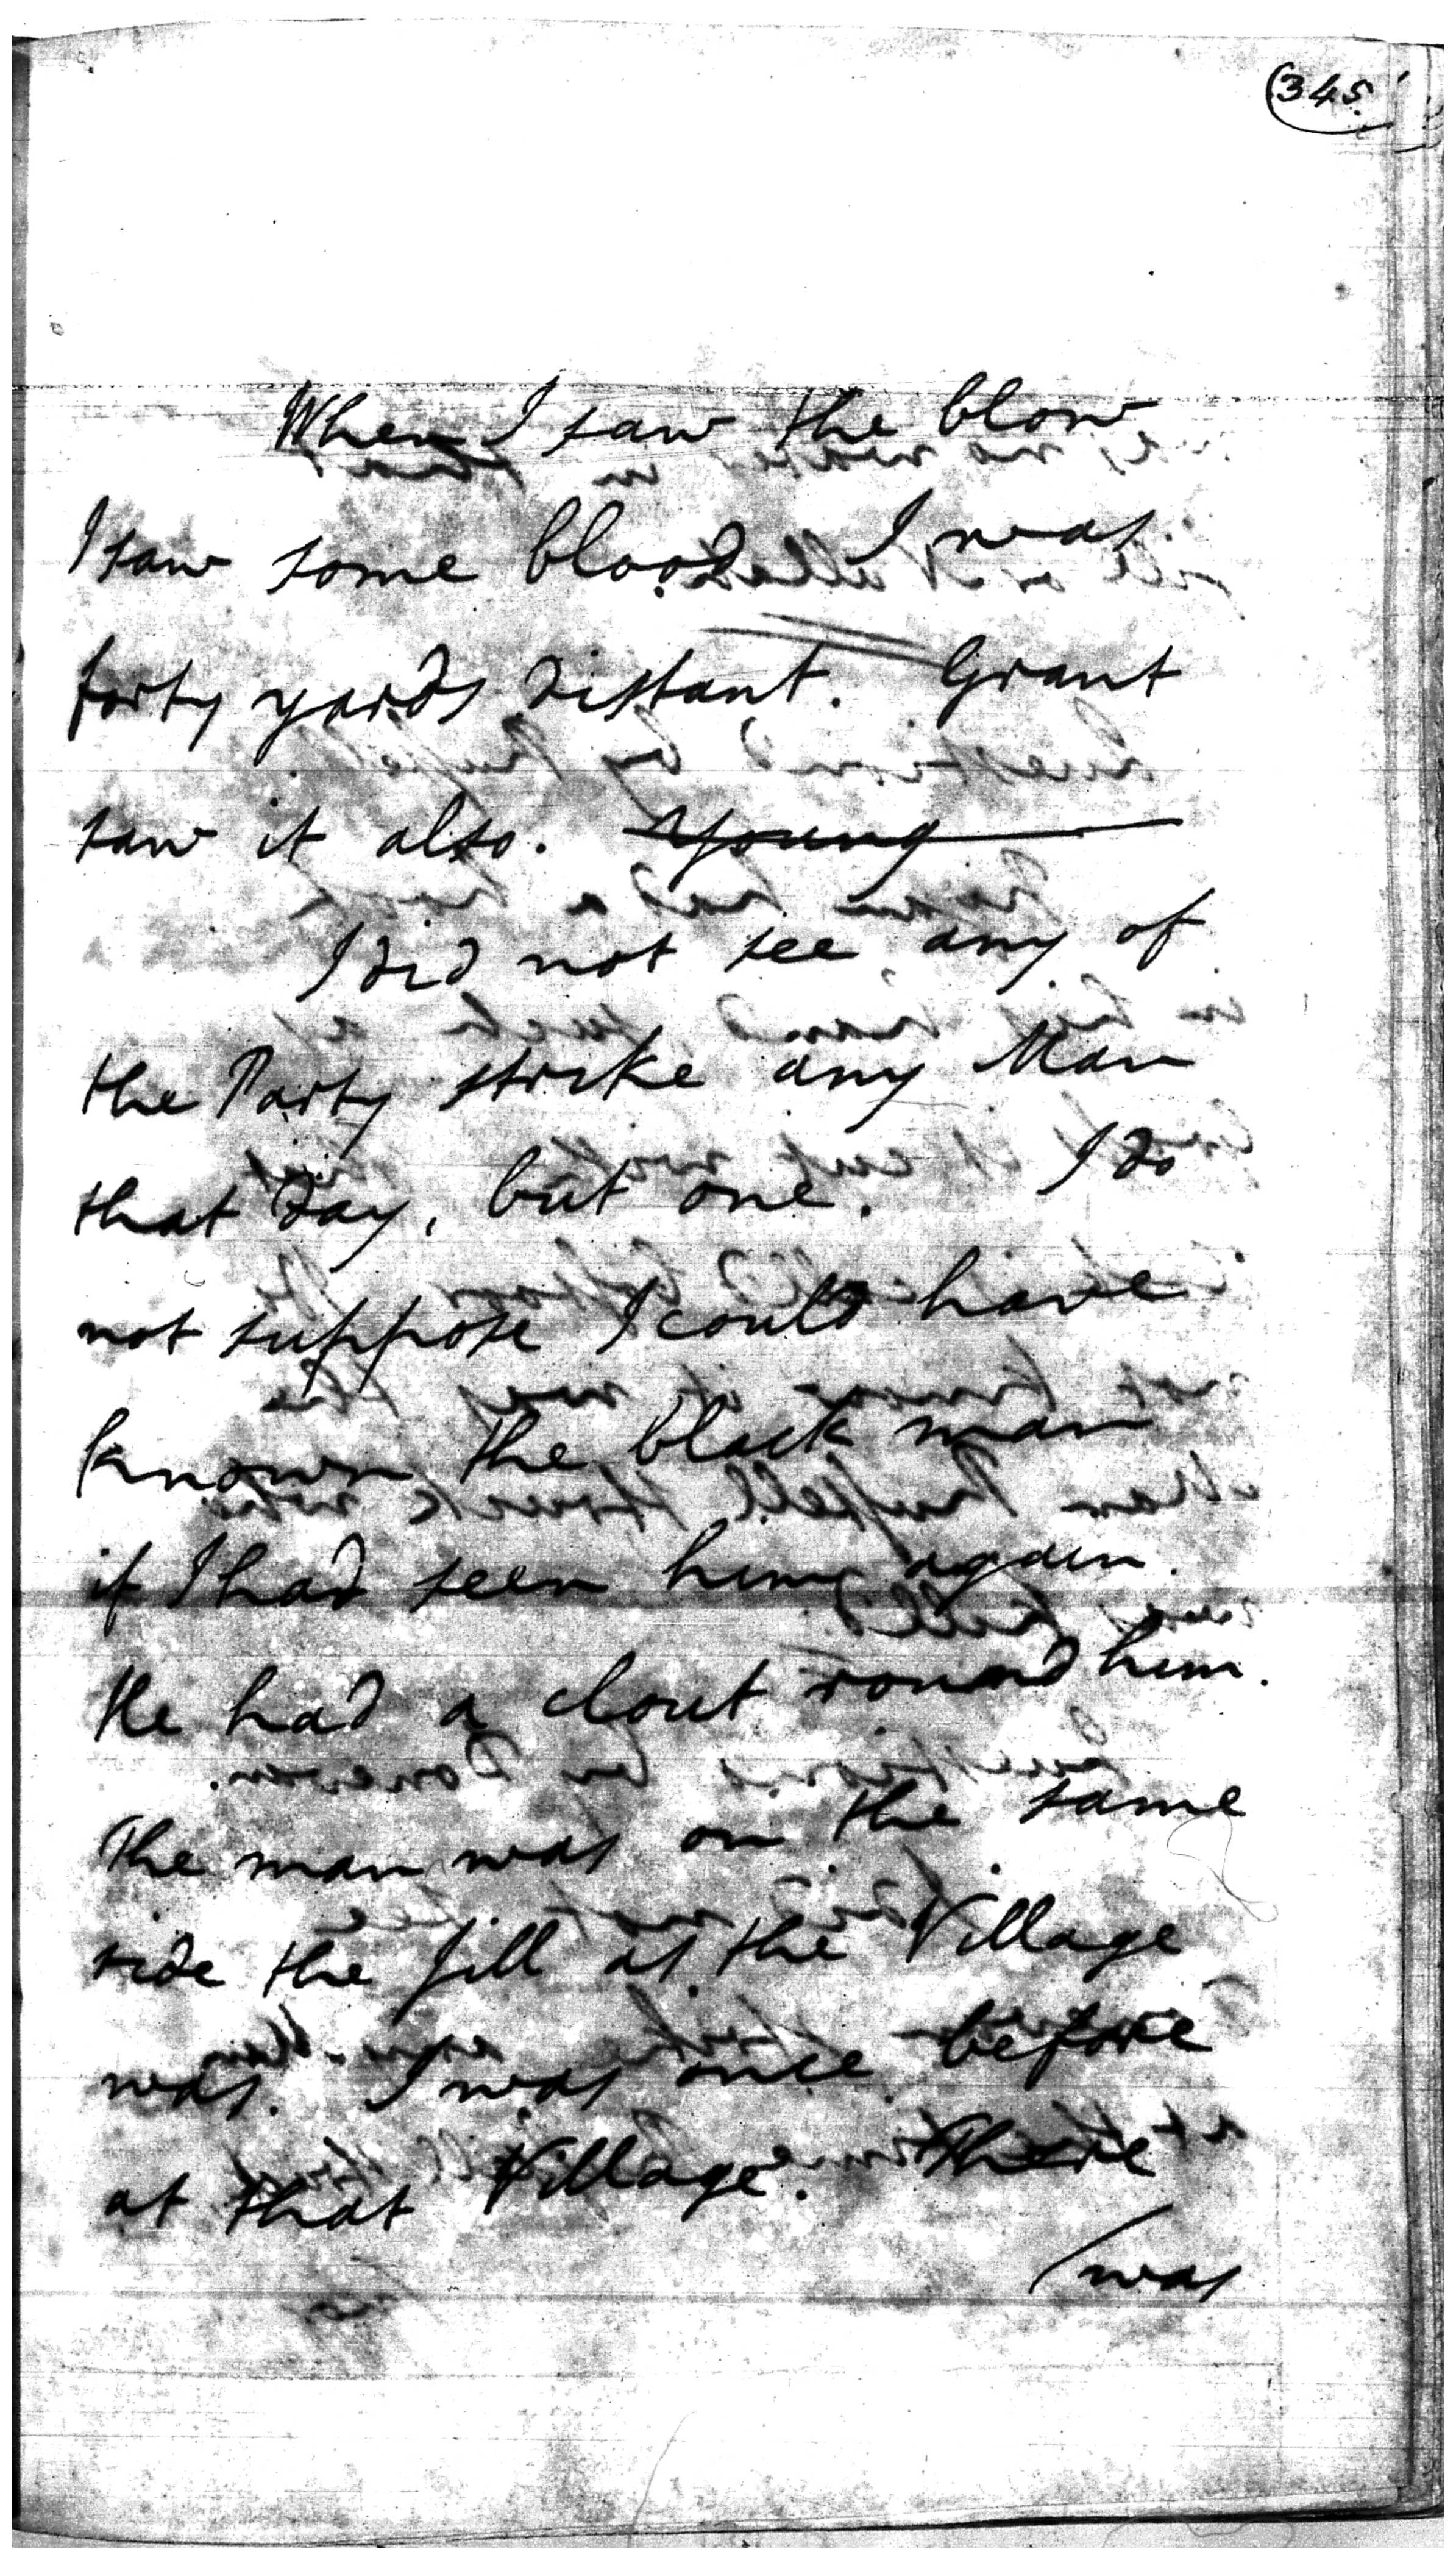 345
When I saw the blow
I saw some blood. I was
forty yards distant. Grant
saw it also. Young
I did not see any of
the Party strike any Man
that day, but one. I do
not suppose I could have
known the black man
if I had seen him again.
He had a clout round him.
The man was on the same
side the Jill as the Village
was. I was once before
at that Village. There
was